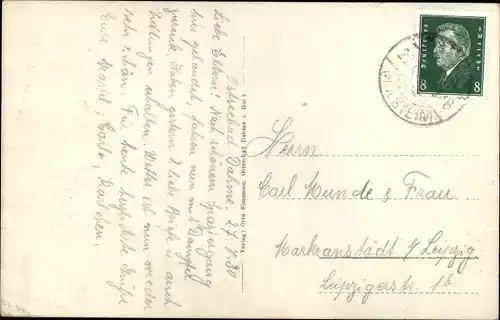 Ostseebad Dahme. 27/7.30
Liebe Eltern! Nach schönem Spaziergang
hier gelandet, fahren nun mit Dampfer
zurück. Haben gestern 2 liebe Briefe u. auch
erhalten. Wetter ist nun wieder
sehr schön. Für heute herzl. liebe Grüße
Eure
Verlag: Otto Ostseebad Dahme i. Holst.
Deutsches Reich
8 8
Herrn
Carl Munde & Frau
Markranstädt b/ Leipzig
Leipzigerstr. 1b